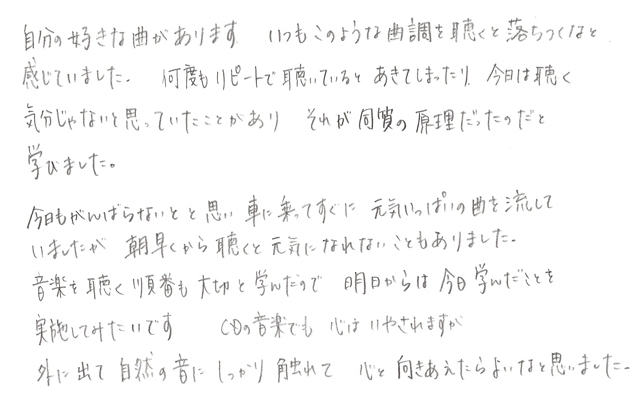 自分の好きな曲があります いつもこのような曲調を聴くと落ちつくなと
感じていました。 何度もリピートで聴いているとあきてしまったり、今日は聴く
気分じゃないと思っていたことがあり それが同質の原理だったのだと
学びました。
今日もがんばらないとと思い 車に乗ってすぐに 元気いっぱいの曲を流して
いましたが 朝早くから聴くと元気になれないこともありました。
音楽を聴く順番も大切と学んだので 明日からは今日学んだことを
実施してみたいです CDの音楽でも心はいやされますが
外に出て自然の音にしっかり触れて 心と向きあえたらよいなと思いました。